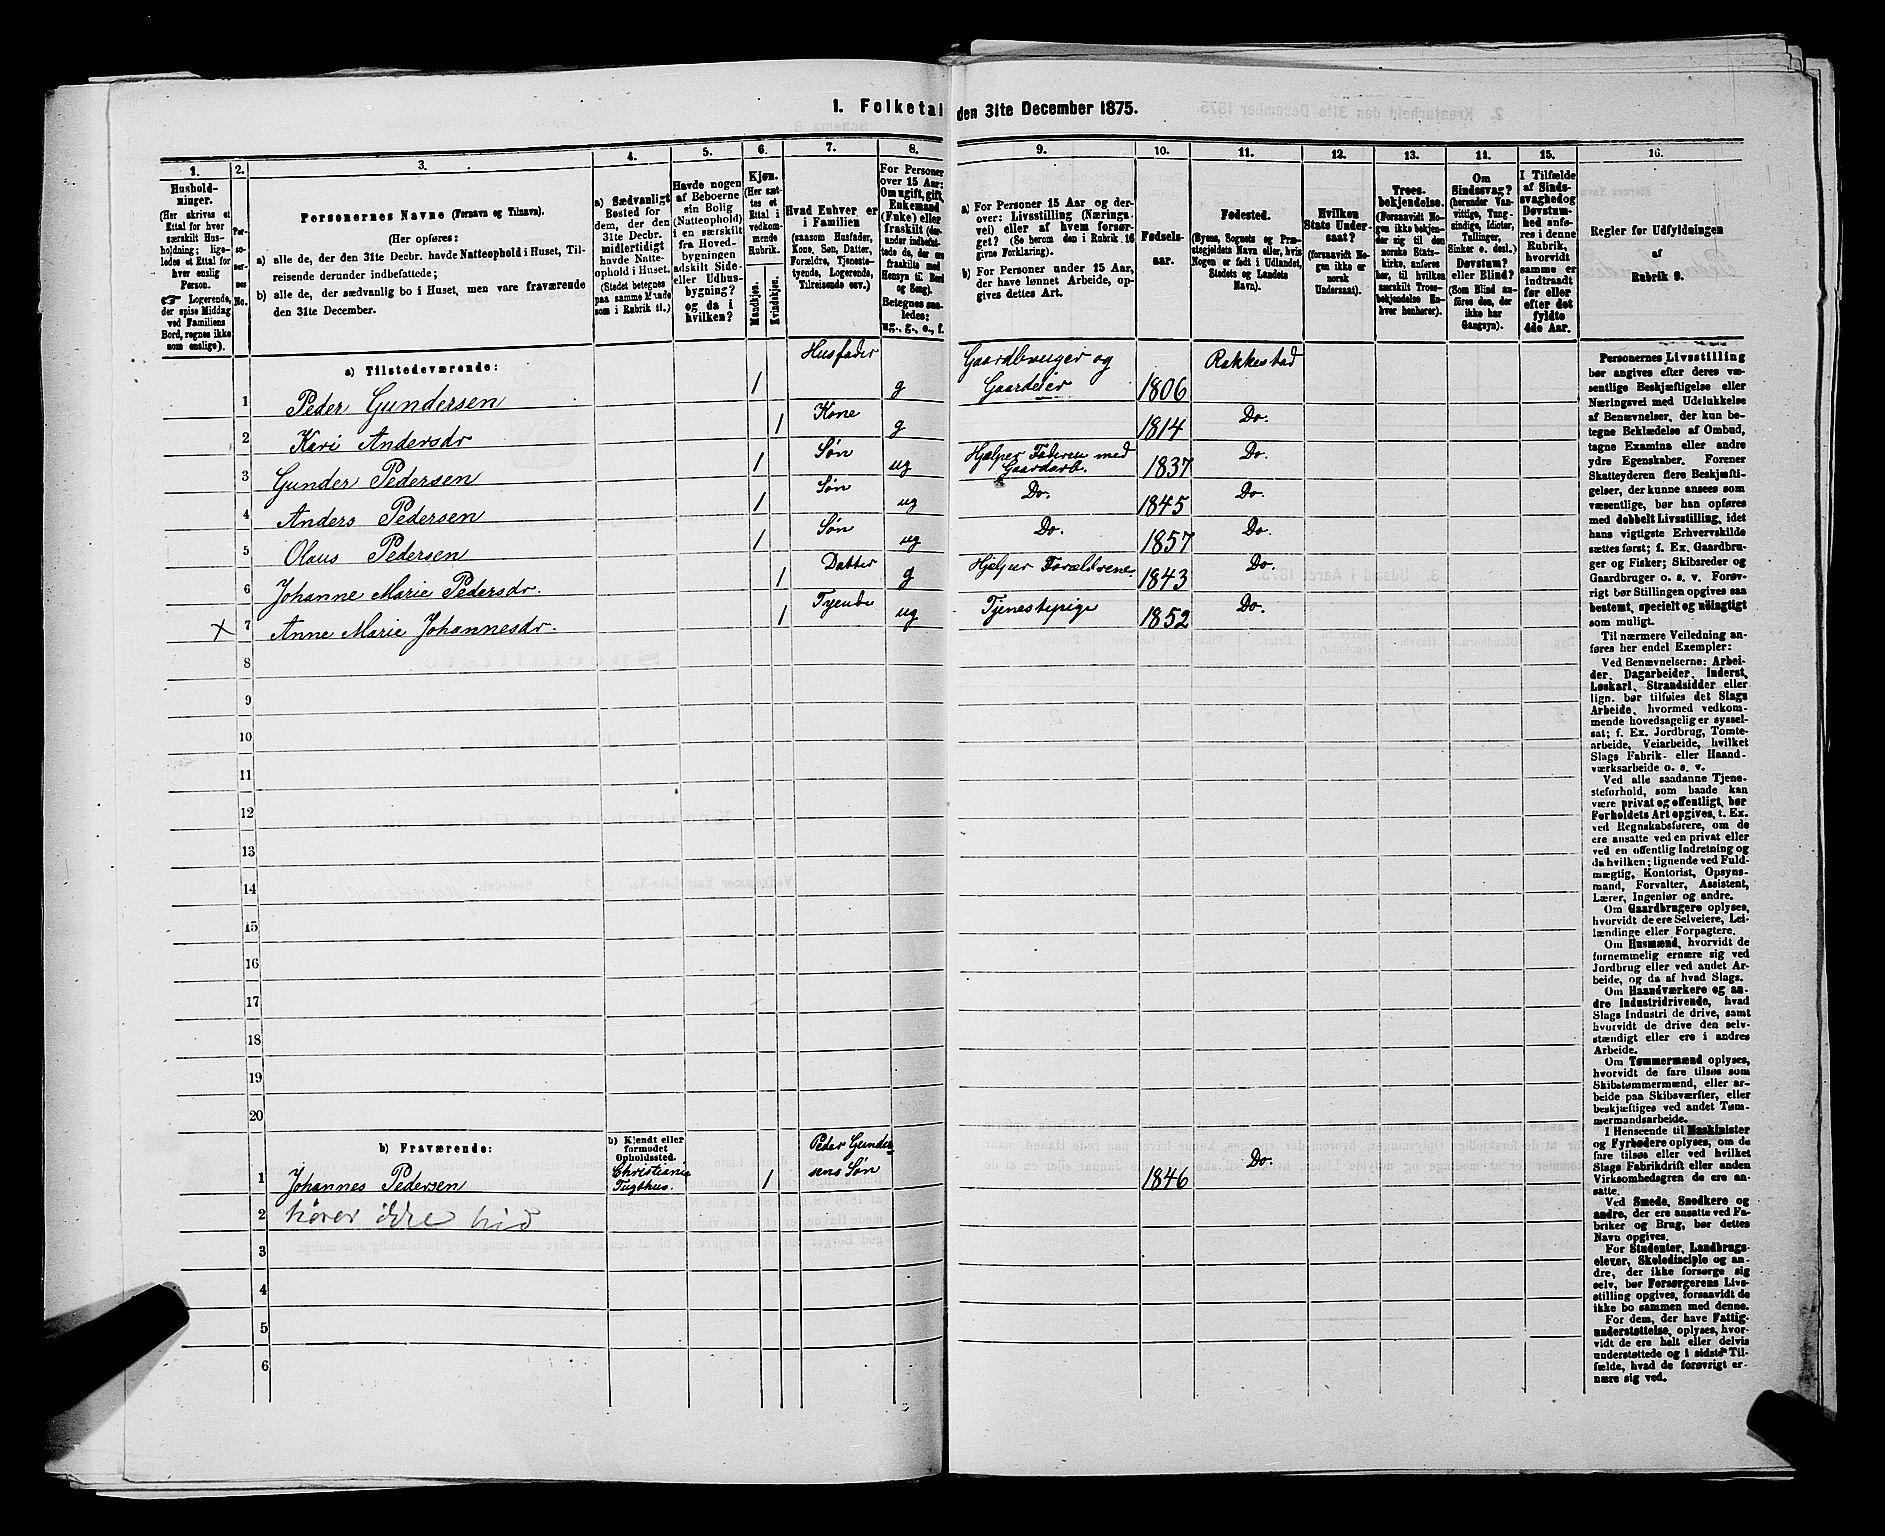 1. Folketal den 31te December 1875.
1. 2. 3. 4. 5. 6. 7. 8. 9. 10. 11. 12. 13. 14. 15. 16.
Hushold-
ninger.
(Her skrives et
Ettal for hver
særskilt Hus-
holdning; lige-
ledes et Ettal for
hver enslig
Person.
☞ Logerende,
der spise Middag
ved Familiens
Bord, regnes ikke
som enslige).
Per-
so-
ner-
nes
No.
Personernes Navne (Fornavn og Tilnavn).
(Her opføres:
a) alle de, der den 31te Decbr. havde Natteophold i Huset, Til-
reisende derunder indbefattede;
b) alle de, der sædvanlig bo i Huset, men vare fraværende
den 31te December.
a) Sædvanligt
Bosted for
dem, der den
31te Decbr.
midlertidigt
havde Natte-
ophold i Huset.
(Stedet betegnes
paa samme Maade
som i Rubrik 11.)
Havde nogen
af Beboerne
sin Bolig
(Natteophold)
i en særskilt
fra Hoved-
bygningen
adskilt Side-
eller Udhus-
bygning?
og da i
hvilken?
Kjøn.
(Her sæt-
tes et
Ettal i
vedkom-
mende
Rubrik.
Mandkjøn.
Kvindekjøn.
Hvad Enhver er
i Familien
(saasom Husfader,
Kone, Søn, Datter,
Forældre, Tjeneste-
tyende, Logerende,
Tilreisende osv.)
For Personer
over 15 Aar:
Om ugift, gift,
Enkemand
(Enke) eller
fraskilt (der-
under indbefat-
tede de, der ere
fraskilte med
Hensyn til Bord
og Seng).
Betegnes saa-
ledes:
ug., g., e., f.
a) For Personer 15 Aar og der-
over: Livsstilling (Nærings-
vei) eller af hvem forsør-
get? (Se herom den i Rubrik 16
givne Forklaring).
b) For Personer under 15 Aar,
der have lønnet Arbeide, op-
gives dettes Art.
Fødsels-
aar.
Fødested.
(Byens, Sognets og Præ-
stegjeldets Navn eller, hvis
Nogen er født i Udlandet,
Stedets og Landets
Navn).
Hvilken
Stats Under-
saat?
(forsaavidt No-
gen ikke er
norsk
Undersaat).
Troes-
bekjendelse.
(Forsaavidt No-
gen ikke bekjen-
der sig til den
norske Stats-
kirke, anføres
her, til hvilken
særskilt Troes-
bekjendelse En-
hver henhører).
Om
Sindssvag?
(herunder Van-
vittige, Tung-
sindige, Idioter,
Tullinger,
Sinker o. desl.)
Døvstum?
eller Blind?
(Som Blind an-
føres den, der
ikke har
Gangsyn).
I Tilfælde
af Sinds-
svaghed og
Døvstum-
hed anfø-
res i denne
Rubrik,
hvorvidt
samme er
indtraadt
før eller
efter det
fyldte
4de Aar.
Regler for Udfyldningen
af
Rubrik 9.
a) Tilstedeværende:
1 Peder Gundersen 1 Husfader g Gaardbruger og Gaardeier 1806 Rakkestad
2 Kari Andersdr 1 Kone g 1814 Do.
3 Gunder Pedersen 1 Søn ug Hjælper Faderen med Gaardarb. 1837 Do.
4 Anders Pedersen 1 Søn ug Do. 1845 Do.
5 Olaus Pedersen 1 Søn ug Do. 1857 Do.
6 Johanne Marie Pedersdr. 1 Datter g Hjelper Forældrene 1843 Do.
x 7 Anne Marie Johannesdr. 1 Tyende ug Tjenestepige 1852 Do.
8
9
10
11
12
13
14
15
16
17
18
19
20
b) Fraværende:
b) Kjendt eller
formodet
Opholdssted.
1 Johannes Pedersen Christiania Tugthus. 1 Peder Gundersens Søn 1846 Do.
2 hører ikke hid
3
4
5
6
Personernes Livsstilling
bør angives efter deres væ-
sentlige Beskjæftigelse eller
Næringsvei med Udelukkelse
af Benævnelser, der kun be-
tegne Beklædelse af Ombud,
tagne Examina eller andre
ydre Egenskaber. Forener
Skatteyderen flere Beskjæfti-
gelser, der kunne ansees som
væsentlige, bør han opføres
med dobbelt Livsstilling, idet
hans vigtigste Erhvervskilde
sættes først; f. Ex. Gaardbru-
ger og Fisker; Skibsreder og
Gaardbruger o. s. v. Forøv-
rigt bør Stillingen opgives saa
bestemt, specielt og nøiagtigt
som muligt.
Til nærmere Veiledning an-
føres her endel Exempler:
Ved Benævnelserne: Arbei-
der, Dagarbeider, Inderst,
Løskarl, Strandsidder eller
lign. bør tilføies det Slags
Arbeide, hvormed vedkom-
mende hovedsagelig er syssel-
sat; f. Ex. Jordbrug, Tomte-
arbeide, Veiarbeide, hvilket
Slags Fabrik- eller Haand-
værksarbeide o. s. v.
Ved alle saadanne Tjene-
steforhold, som baade kan
være privat og offentligt, bør
Forholdets Art opgives, t. Ex.
ved Regnskabsførere, om de
ere ansatte ved en privat eller
ved en offentlig Indretning og
da hvilken; lignende ved Fuld-
mægtig, Kontorist, Opsyns-
mand, Forvalter, Assistent,
Lærer, Ingeniør og andre.
Om Gaardbrugere oplyses,
hvorvidt de ere Selveiere, Lei-
lændinge eller Forpagtere.
Om Husmænd, hvorvidt de
fornemmelig ernære sig ved
Jordbrug eller ved andet Ar-
beide, og da af hvad Slags.
Om Haandværkere og an-
dre Industridrivende, hvad
Slags Industri de drive, samt
hvorvidt de drive den selv-
stændigt eller ere i andres
Arbeide.
Om Tømmermænd oplyses,
hvorvidt de fare tilsøs som
Skibstømmermænd, eller ar-
beide paa Skibsværfter, eller
beskjæftiges ved andet Tøm-
mermandsarbeide.
I Henseende til Maskinister
og Fyrbødere oplyses, om de
fare tilsøs eller ved hvilket
Slags Fabrikdrift eller anden
Virksomhedsgren de ere an-
satte.
Ved Smede, Snedkere og
andre, der ere ansatte ved Fa-
briker og Brug, bør dettes
Navn opgives.
For Studenter, Landbrugs-
elever, Skoledisciple og an-
dre, der ikke forsørge sig
selv, bør Forsørgerens Livs-
stilling opgives, forsaavidt de
ikke bo sammen med denne.
For dem, der have Fattig-
understøttelse, oplyses, hvor-
vidt de ere helt eller delvis
understøttede og i sidste Til-
fælde, hvad de forøvrigt er-
nære sig ved.